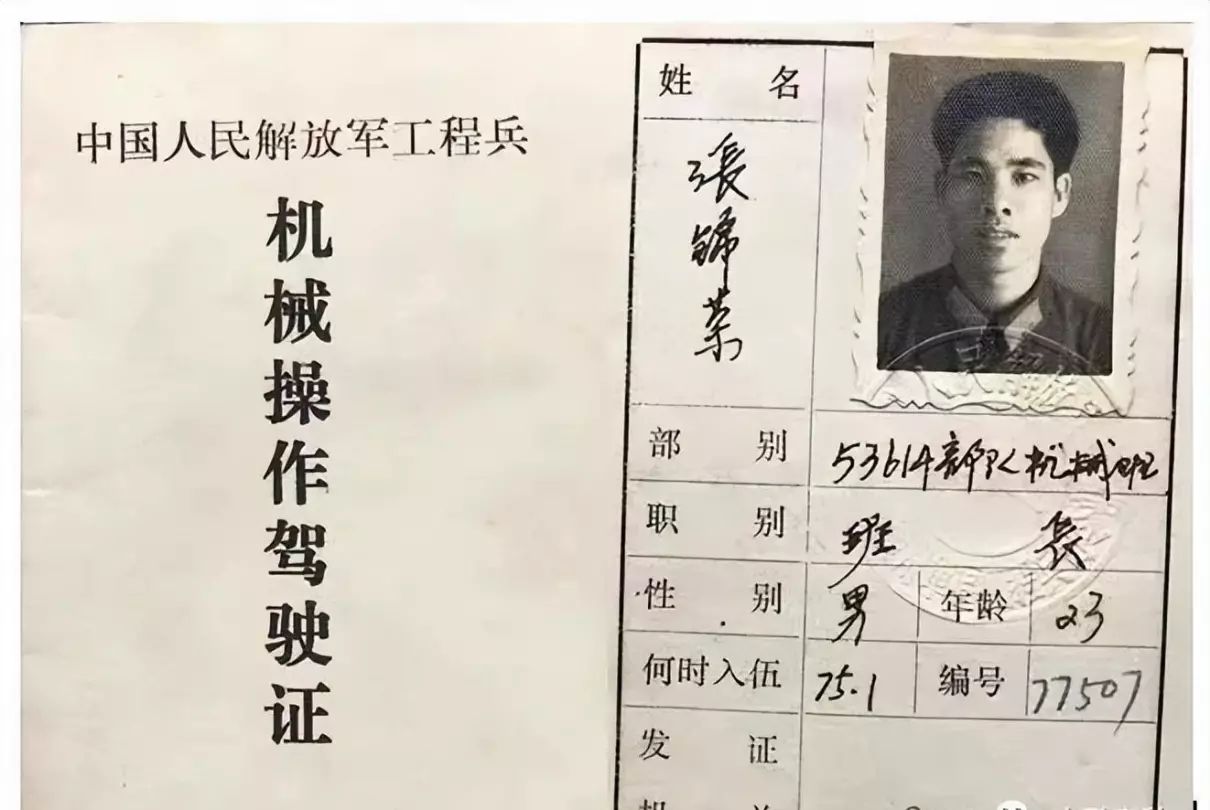 中国人民解放军工程兵
机械操作驾驶证
姓名
張锦荣
部别 53614部队机械班
职别 班長
性别 男 年龄 23
何时入伍 75.1 编号 77507
发证